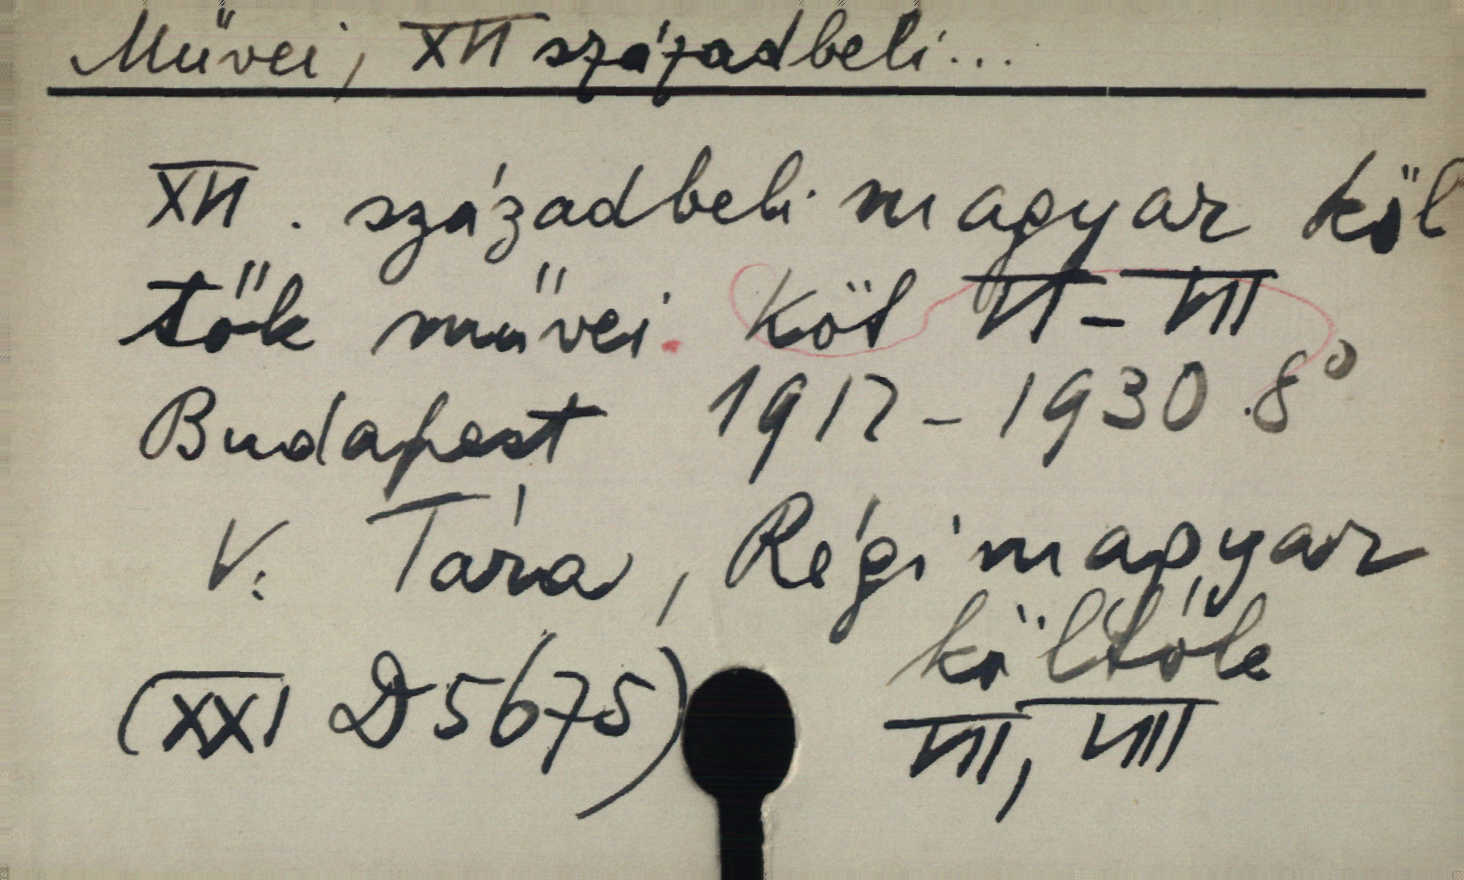 Művei, XVI századbeli...
XVI. századbeli magyar köl
tők művei. Köt VI-VII
Budapest 1912-1930.8°
V. Tára, Régi magyar
költők
VII, VIII
(XXI D5675)